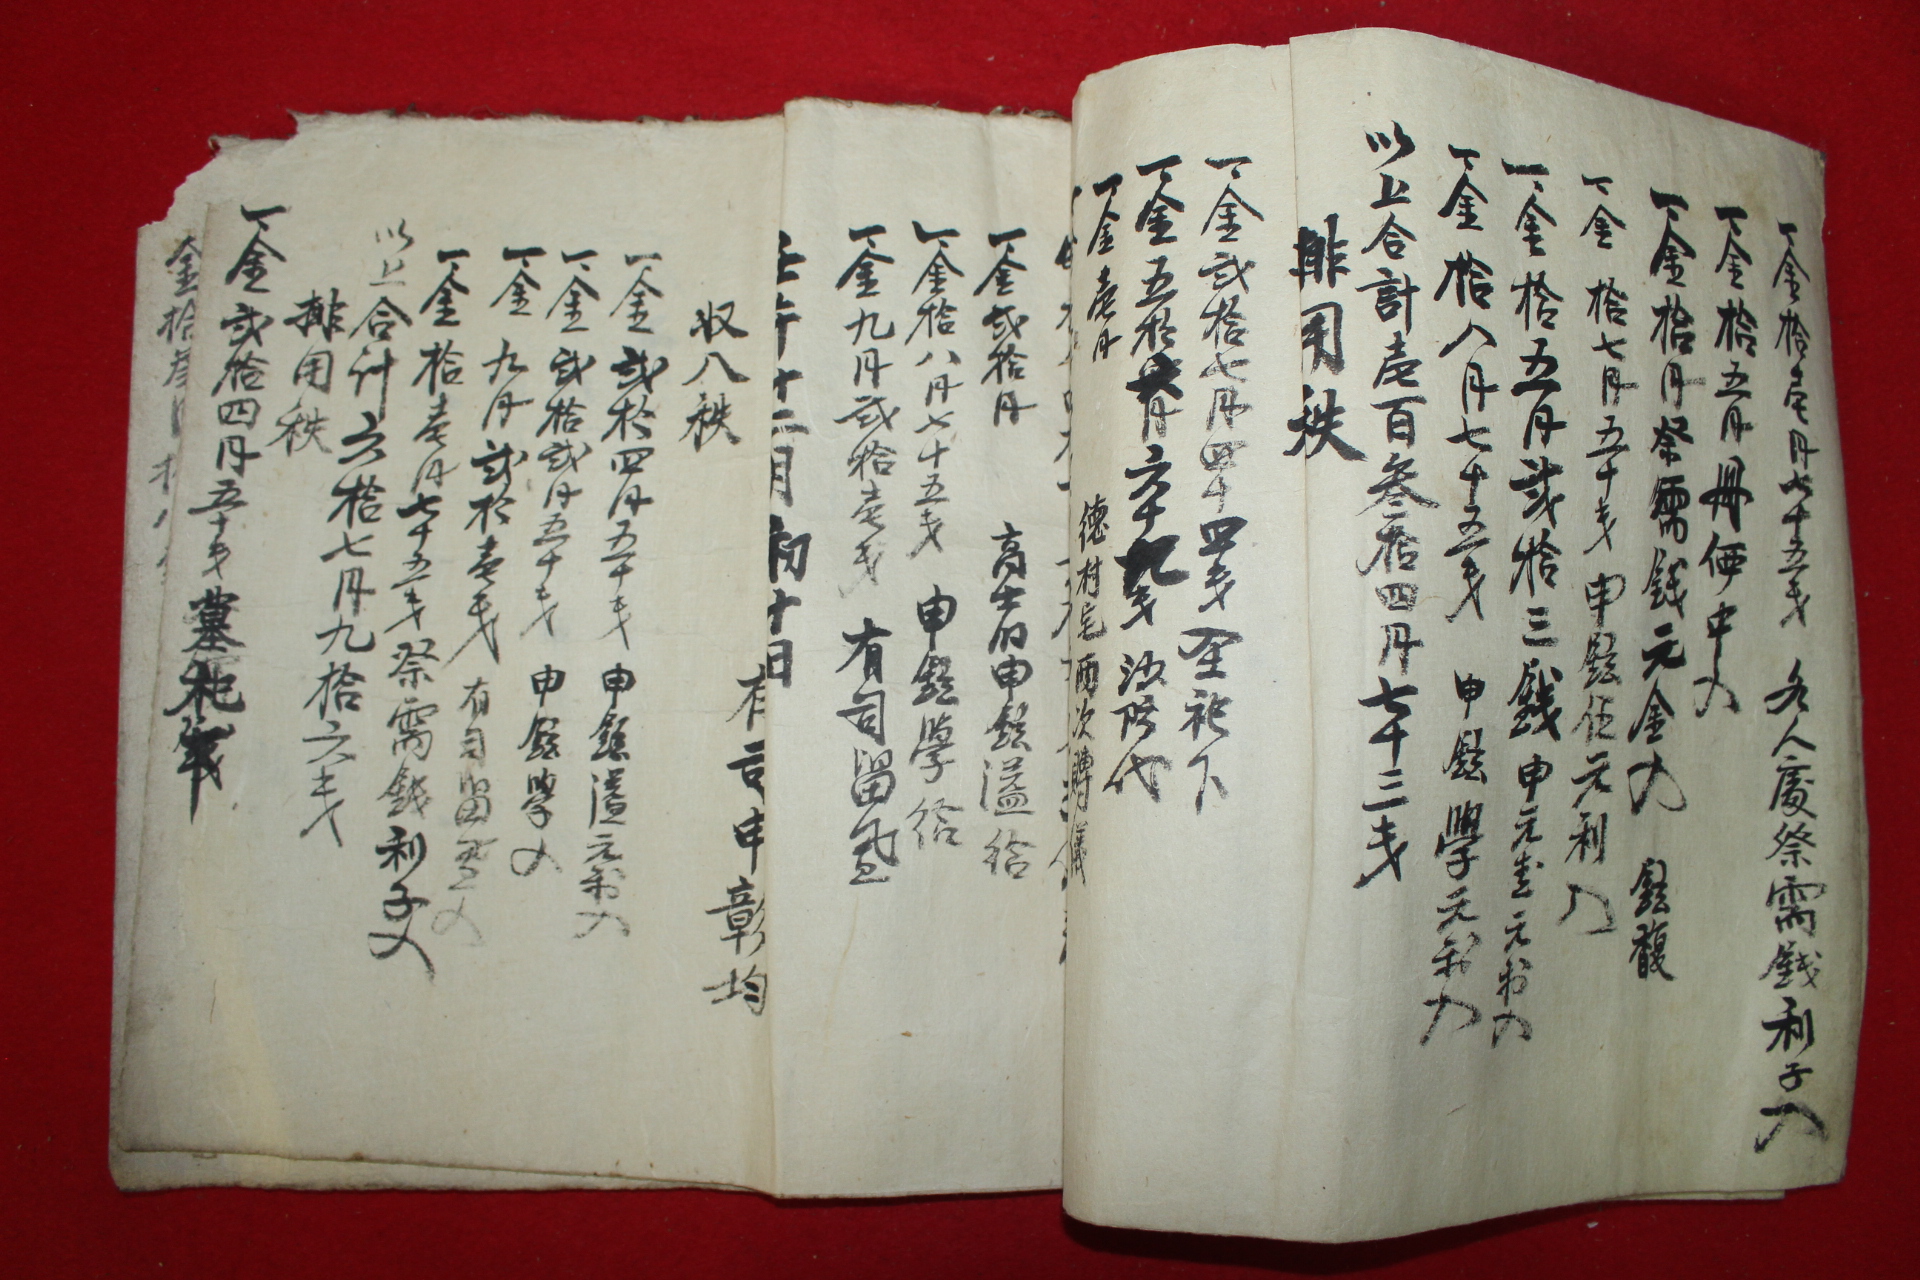 一金拾壱円七十五戋 各人處祭需錢利子入
一金拾五円 冊価中入
一金拾円祭需錢元金入 鉉馥
一金拾七円五十戋 申鉉佐元利入
一金拾五円貳拾三錢申元圭元利入
一金拾八円七十五戋 申鉉學元利入
以上合計壱百叁拾四円七十三戋
排用秩
一金貳拾七円四十四戋
一金五拾 円六十九戋
一金壱円 德村宅 賻儀
一金貳拾円 申鉉溢給
一金拾八円七十五戋 申鉉學給
一金九円貳拾壱戋 有司留置
壬午十二月初十日
有司申彰均
収入秩
一金貳拾四円五十戋 申鉉溢元利入
一金貳拾貳円五十戋 申鉉學入
一金九円貳拾壱戋 有司留置入
一金拾壱円七十五戋祭需錢利子入
以上合計六拾七円九拾六戋
排用秩
一金貳拾四円五十戋墓祀
金拾叁円